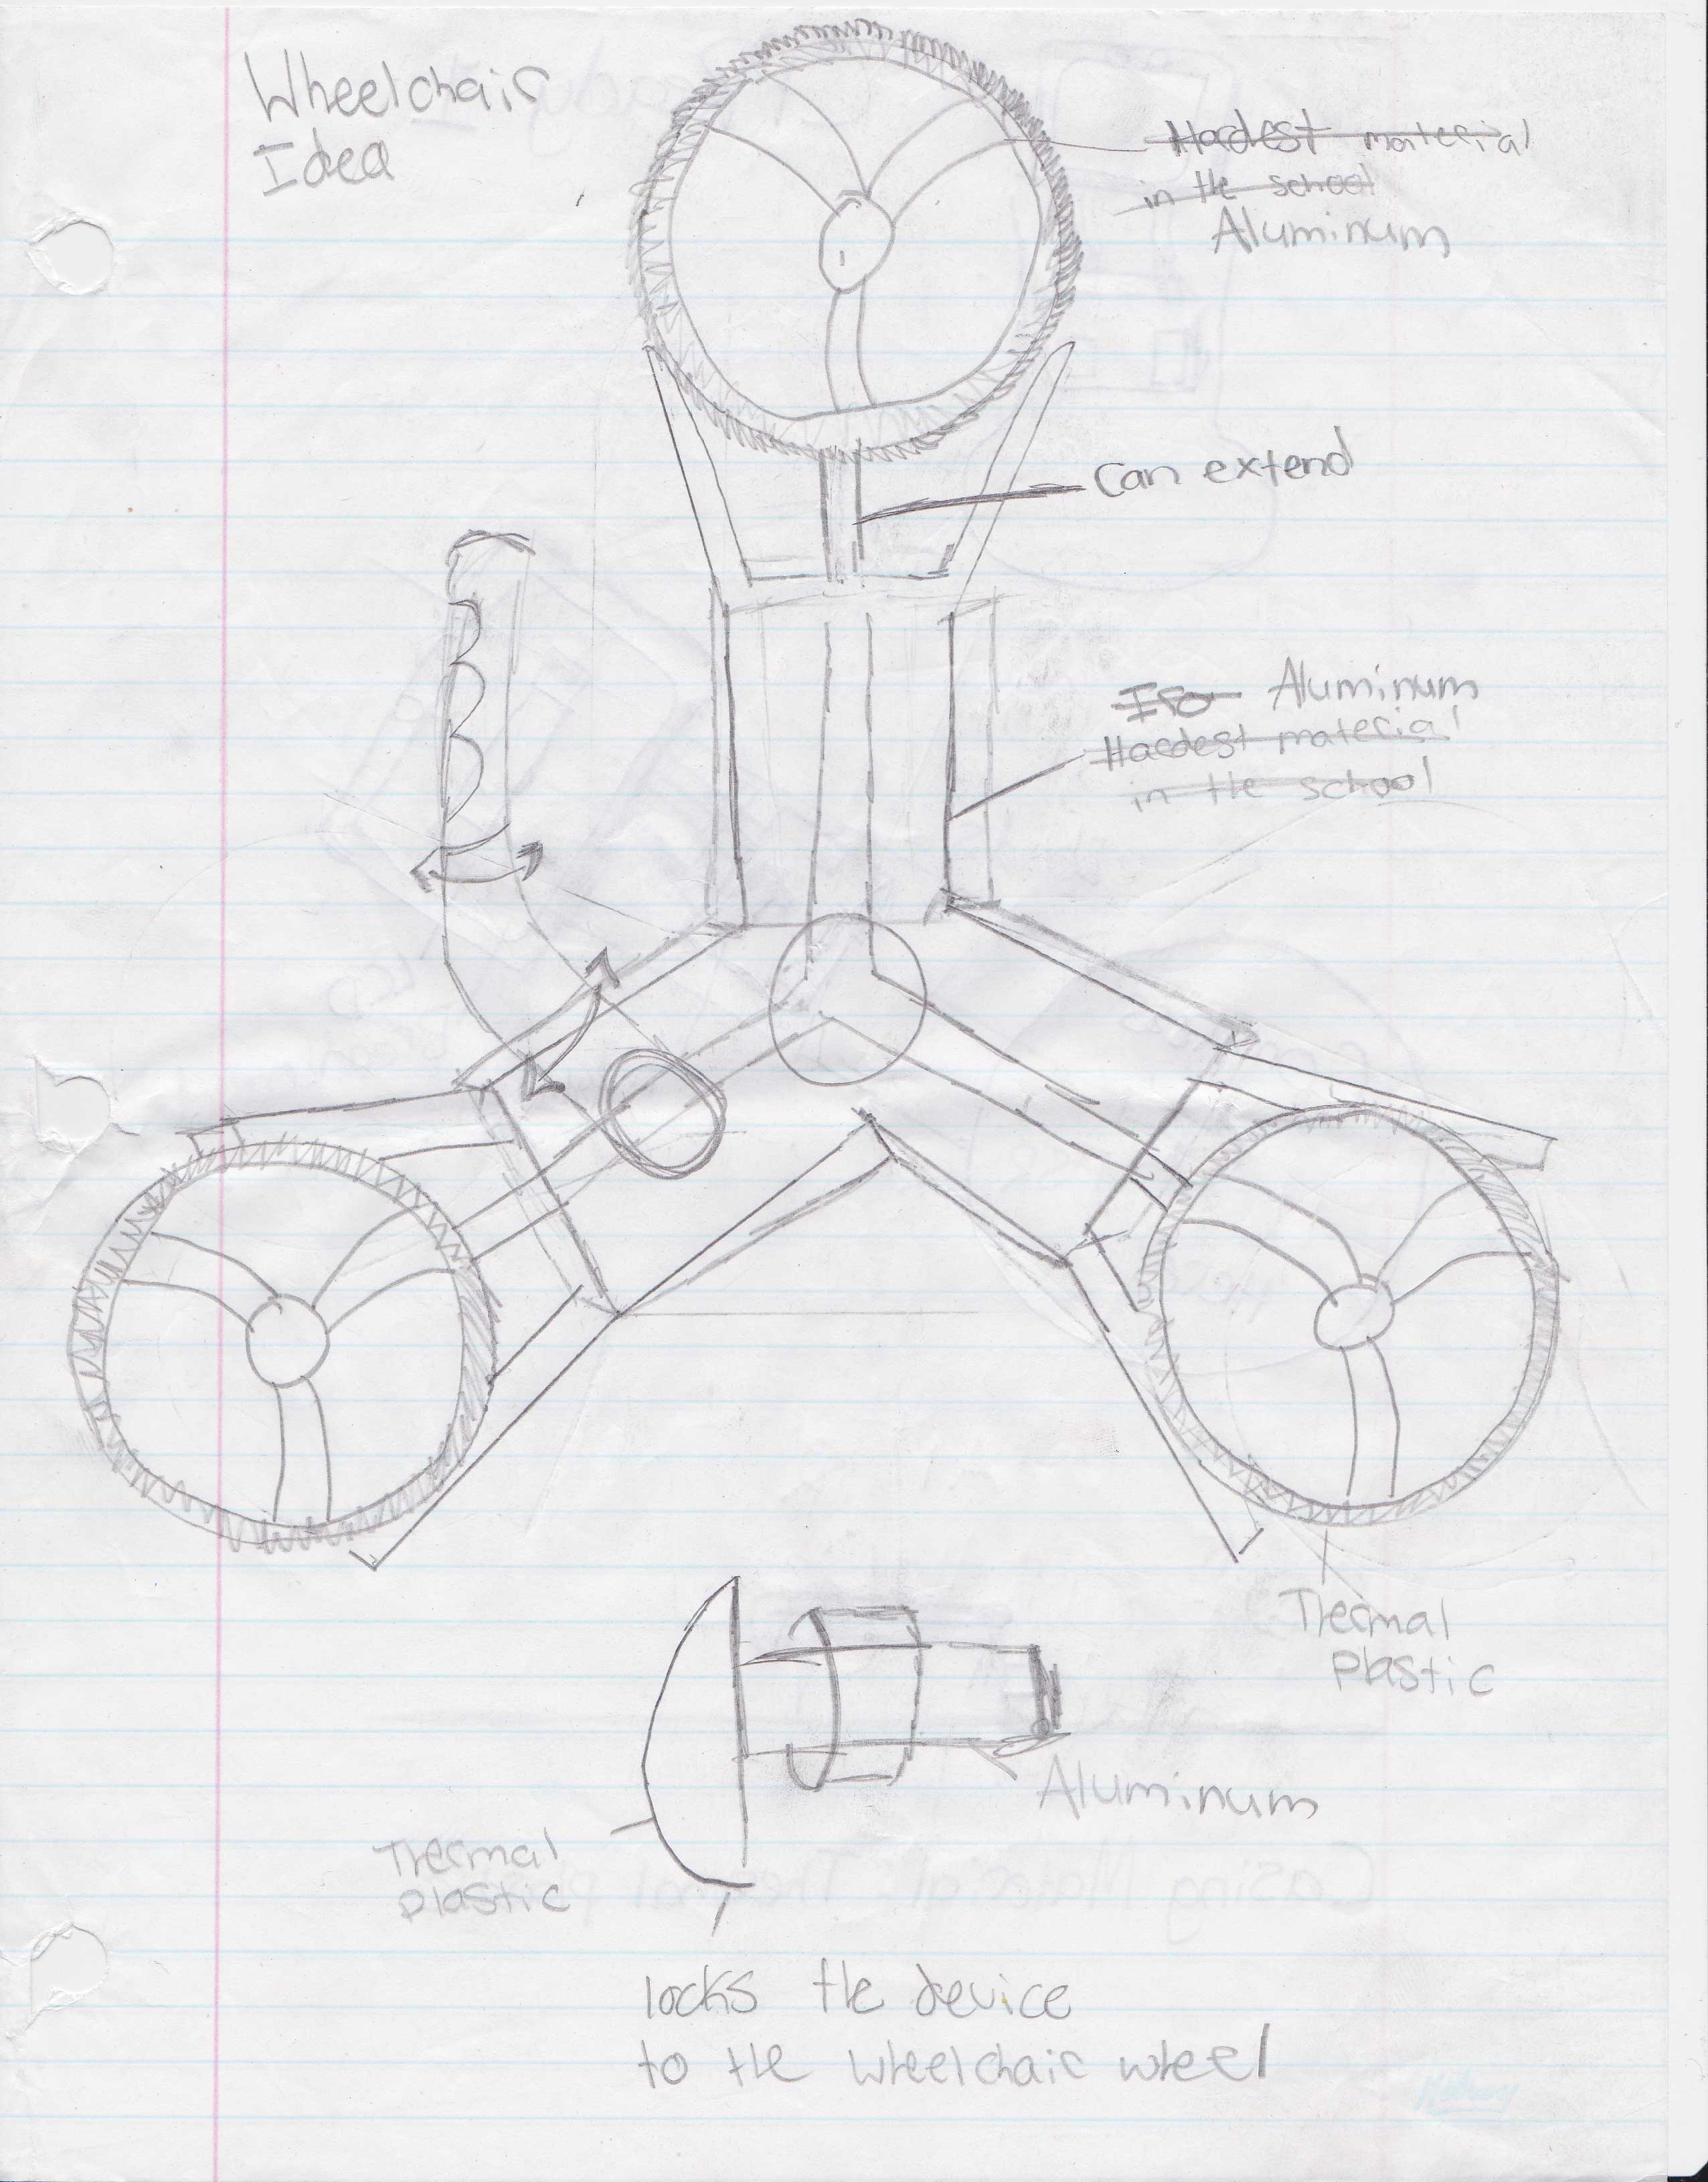 Wheelchair
Idea
Hardest material
in the school
Aluminum
Can extend
Iro Aluminum
Hardest material
in the school
Thermal
plastic
Aluminum
Thermal
plastic
locks the device
to the wheelchair wheel
Casing Material: Thermal pl